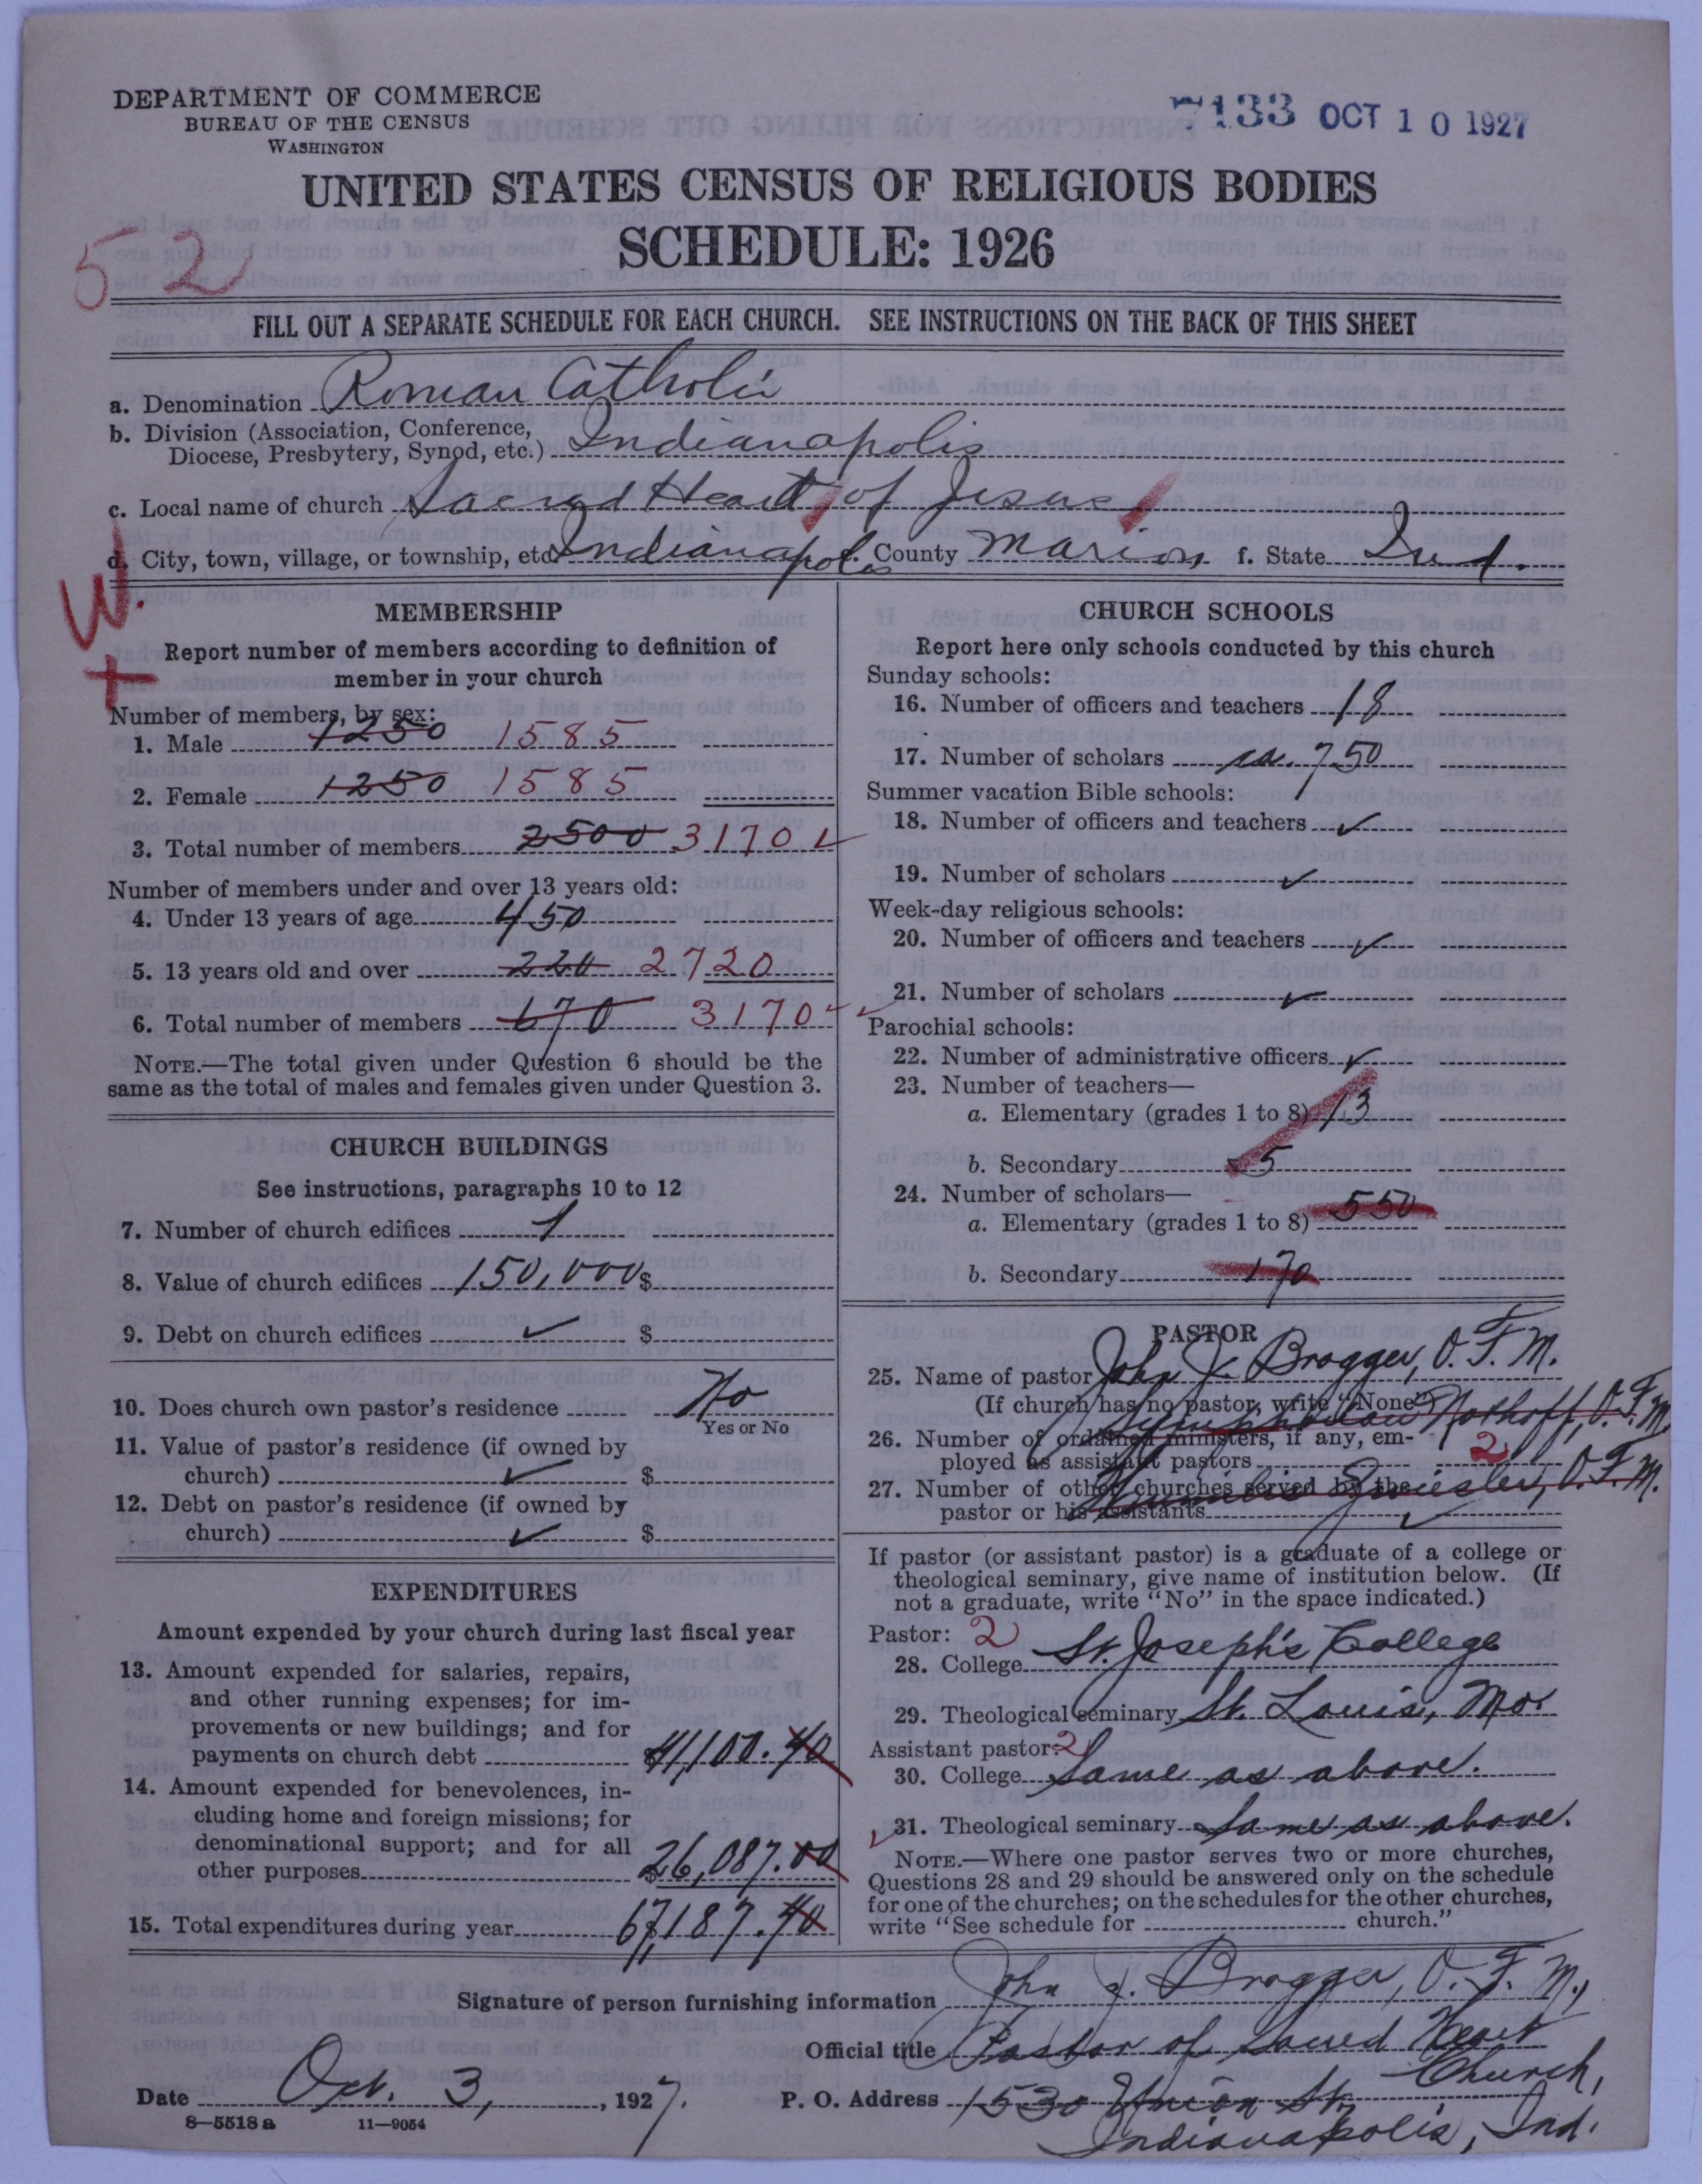 DEPARTMENT OF COMMERCE
BUREAU OF THE CENSUS
WASHINGTON
7133 OCT 10 1927
UNITED STATES CENSUS OF RELIGIOUS BODIES
SCHEDULE: 1926
52
FILL OUT A SEPARATE SCHEDULE FOR EACH CHURCH. SEE INSTRUCTIONS ON THE BACK OF THIS SHEET
a. Denomination Roman Catholic
b. Division (Association, Conference,
Diocese, Presbytery, Synod, etc.) Indianapolis
c. Local name of church Sacred Heart of Jesus
d. City, town, village, or township, etc. Indianapolis County Marion f. State Ind.
W.
+
MEMBERSHIP
Report number of members according to definition of
member in your church
Number of members, by sex:
1. Male 1250 1585
2. Female 1250 1585
3. Total number of members 2500 3170 ✓
Number of members under and over 13 years old:
4. Under 13 years of age 450
5. 13 years old and over 220 2720
6. Total number of members 670 3170 ✓✓
NOTE.—The total given under Question 6 should be the
same as the total of males and females given under Question 3.
CHURCH BUILDINGS
See instructions, paragraphs 10 to 12
7. Number of church edifices 1
8. Value of church edifices 150,000 $
9. Debt on church edifices ✓ $
10. Does church own pastor's residence No
Yes or No
11. Value of pastor's residence (if owned by
church) ✓ $
12. Debt on pastor's residence (if owned by
church) ✓ $
EXPENDITURES
Amount expended by your church during last fiscal year
13. Amount expended for salaries, repairs,
and other running expenses; for im-
provements or new buildings; and for
payments on church debt $41,100.40
14. Amount expended for benevolences, in-
cluding home and foreign missions; for
denominational support; and for all
other purposes $26,087.00
15. Total expenditures during year $67,187.40
CHURCH SCHOOLS
Report here only schools conducted by this church
Sunday schools:
16. Number of officers and teachers 18
17. Number of scholars ca. 750
Summer vacation Bible schools:
18. Number of officers and teachers ✓
19. Number of scholars ✓
Week-day religious schools:
20. Number of officers and teachers ✓
21. Number of scholars ✓
Parochial schools:
22. Number of administrative officers ✓
23. Number of teachers—
a. Elementary (grades 1 to 8) 13
b. Secondary 5
24. Number of scholars—
a. Elementary (grades 1 to 8) 550
b. Secondary 170
PASTOR
25. Name of pastor John J. Brogger, O. F. M.
(If church has no pastor, write "None") Nothoff, O. F. M.
26. Number of ordained ministers, if any, em-
ployed as assistant pastors 2
27. Number of other churches served by the O. F. M.
pastor or his assistants ✓
If pastor (or assistant pastor) is a graduate of a college or
theological seminary, give name of institution below. (If
not a graduate, write "No" in the space indicated.)
Pastor: 2
28. College St. Joseph's College
29. Theological seminary St. Louis, Mo.
Assistant pastor: 2
30. College Same as above.
✓ 31. Theological seminary Same as above.
NOTE.—Where one pastor serves two or more churches,
Questions 28 and 29 should be answered only on the schedule
for one of the churches; on the schedules for the other churches,
write "See schedule for church."
Signature of person furnishing information John J. Brogger, O. F. M.,
Official title Pastor of Sacred Heart
Church,
Date Oct. 3, 1927. P. O. Address 1530 Union St.
Indianapolis, Ind.
8—5518 a 11—9054